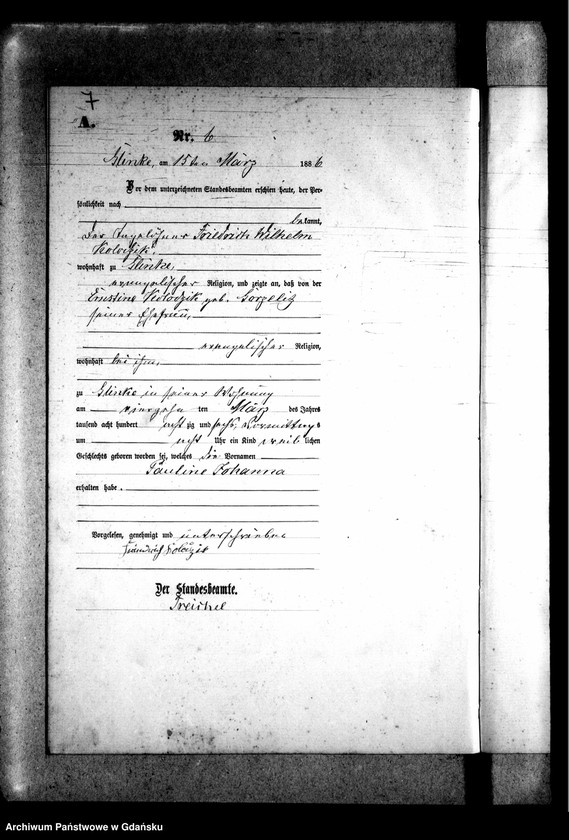 7
A.
Nr. 6
Glinke, am 15ten März 1886
Vor dem unterzeichneten Standesbeamten erschien heute, der Per-
sönlichkeit nach
bekannt,
der Friedrich Wilhelm
Kolodzik
wohnhaft zu Glinke,
evangelischer Religion, und zeigte an, daß von der
Ernstine Kolodzik geb. Görgelitz
seiner Ehefrau,
evangelischer Religion,
wohnhaft bei ihm,
zu Glinke in seiner Wohnung
am vierzehn ten März des Jahres
tausend acht hundert acht zig und sechs, Vormittags
um acht Uhr ein Kind weiblichen
Geschlechts geboren worden sei, welches die Vornamen
Pauline Johanna
erhalten habe.
Vorgelesen, genehmigt und unterschrieben
Friedrich Kolodzik
Der Standesbeamte.
Treichel
Archiwum Państwowe w Gdańsku